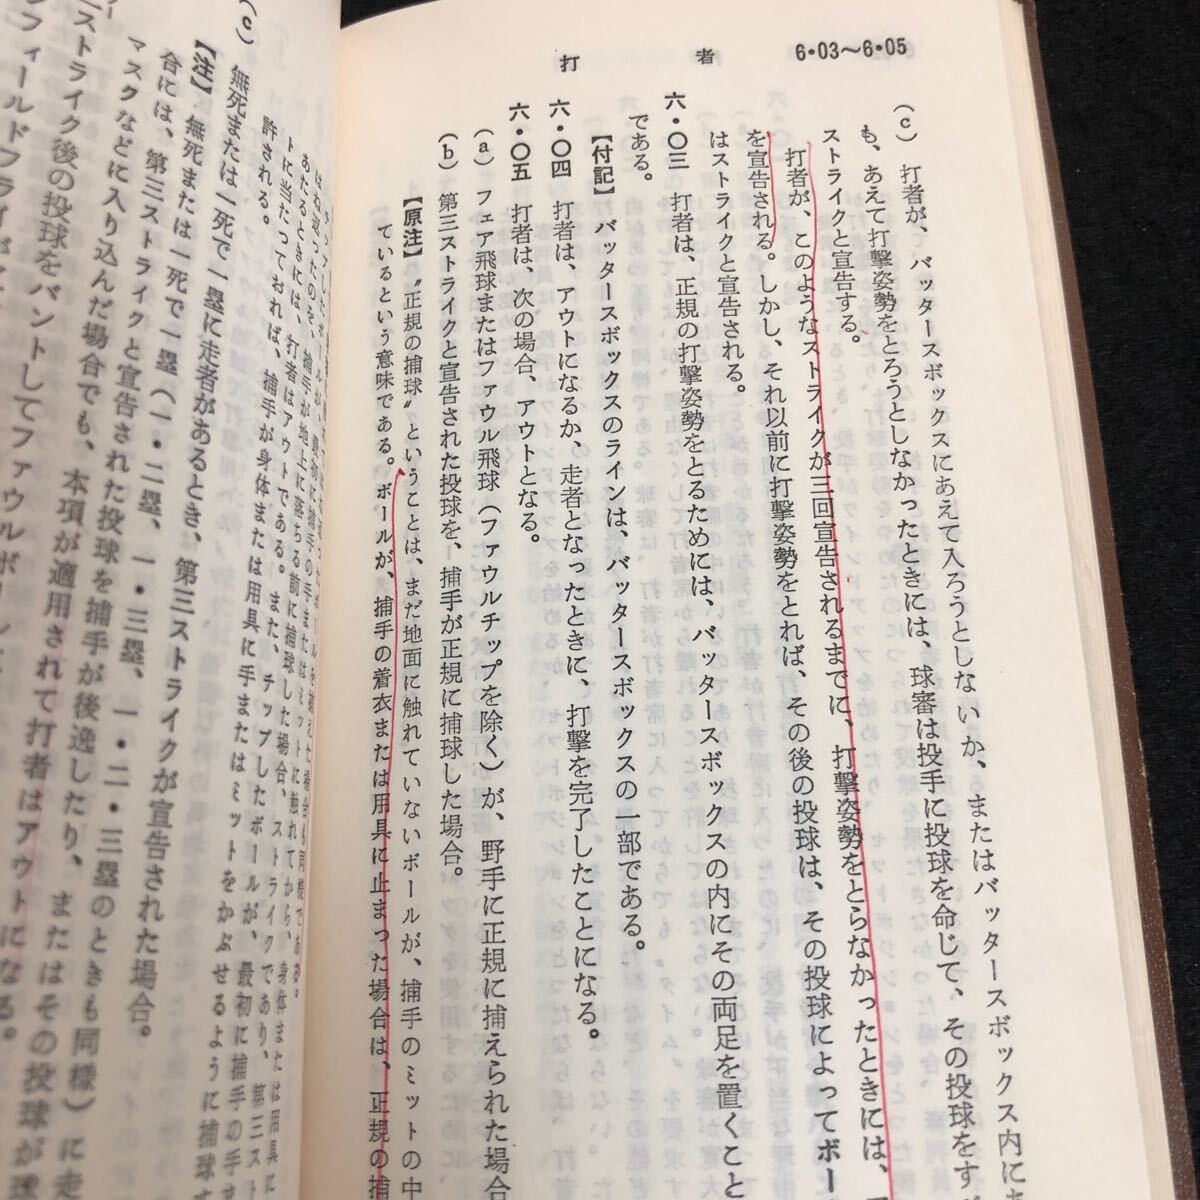 打者
6・03〜6・05
(c) 打者が、バッタースボックスにあえて入ろうとしないか、またはバッタースボックス内に
も、あえて打撃姿勢をとろうとしなかったときには、球審は投手に投球を命じて、その投球をす
ストライクと宣告する。
打者が、このようなストライクが三回宣告されるまでに、打撃姿勢をとらなかったときには、
を宣告される。しかし、それ以前に打撃姿勢をとれば、その後の投球は、その投球によってボー
はストライクと宣告される。
六・〇三 打者は、正規の打撃姿勢をとるためには、バッタースボックスの内にその両足を置くこと
である。
【付記】 バッタースボックスのラインは、バッタースボックスの一部である。
六・〇四 打者は、アウトになるか、走者となったときに、打撃を完了したことになる。
六・〇五 打者は、次の場合、アウトとなる。
(a) フェア飛球またはファウル飛球(ファウルチップを除く)が、野手に正規に捕えられた場合
(b) 第三ストライクと宣告された投球を、捕手が正規に捕球した場合。
【原注】 〝正規の捕球〟ということは、まだ地面に触れていないボールが、捕手のミットの中
ているという意味である。ボールが、捕手の着衣または用具に止まった場合は、正規の捕
はね返ったのを、捕手が地上に落ちる前に捕球した場合、ストライクであり、第三スト
あたるときには、打者はアウトである。また、チップしたボールが、最初に捕手の手ま
トに当たっておれば、捕手が身体または用具に手またはミットをかぶせるように捕球
許される。
(c) 無死または一死で一塁に走者があるとき、第三ストライクが宣告された場合。
【注】 無死または一死で一塁(一・二塁、一・三塁、一・二・三塁のときも同様)に走
合には、第三ストライクと宣告された投球を捕手が後逸したり、またはその投球が球
マスクなどに入り込んだ場合でも、本項が適用されて打者はアウトになる。
ストライク後の投球をバントしてファウルボー
フィールドフライが